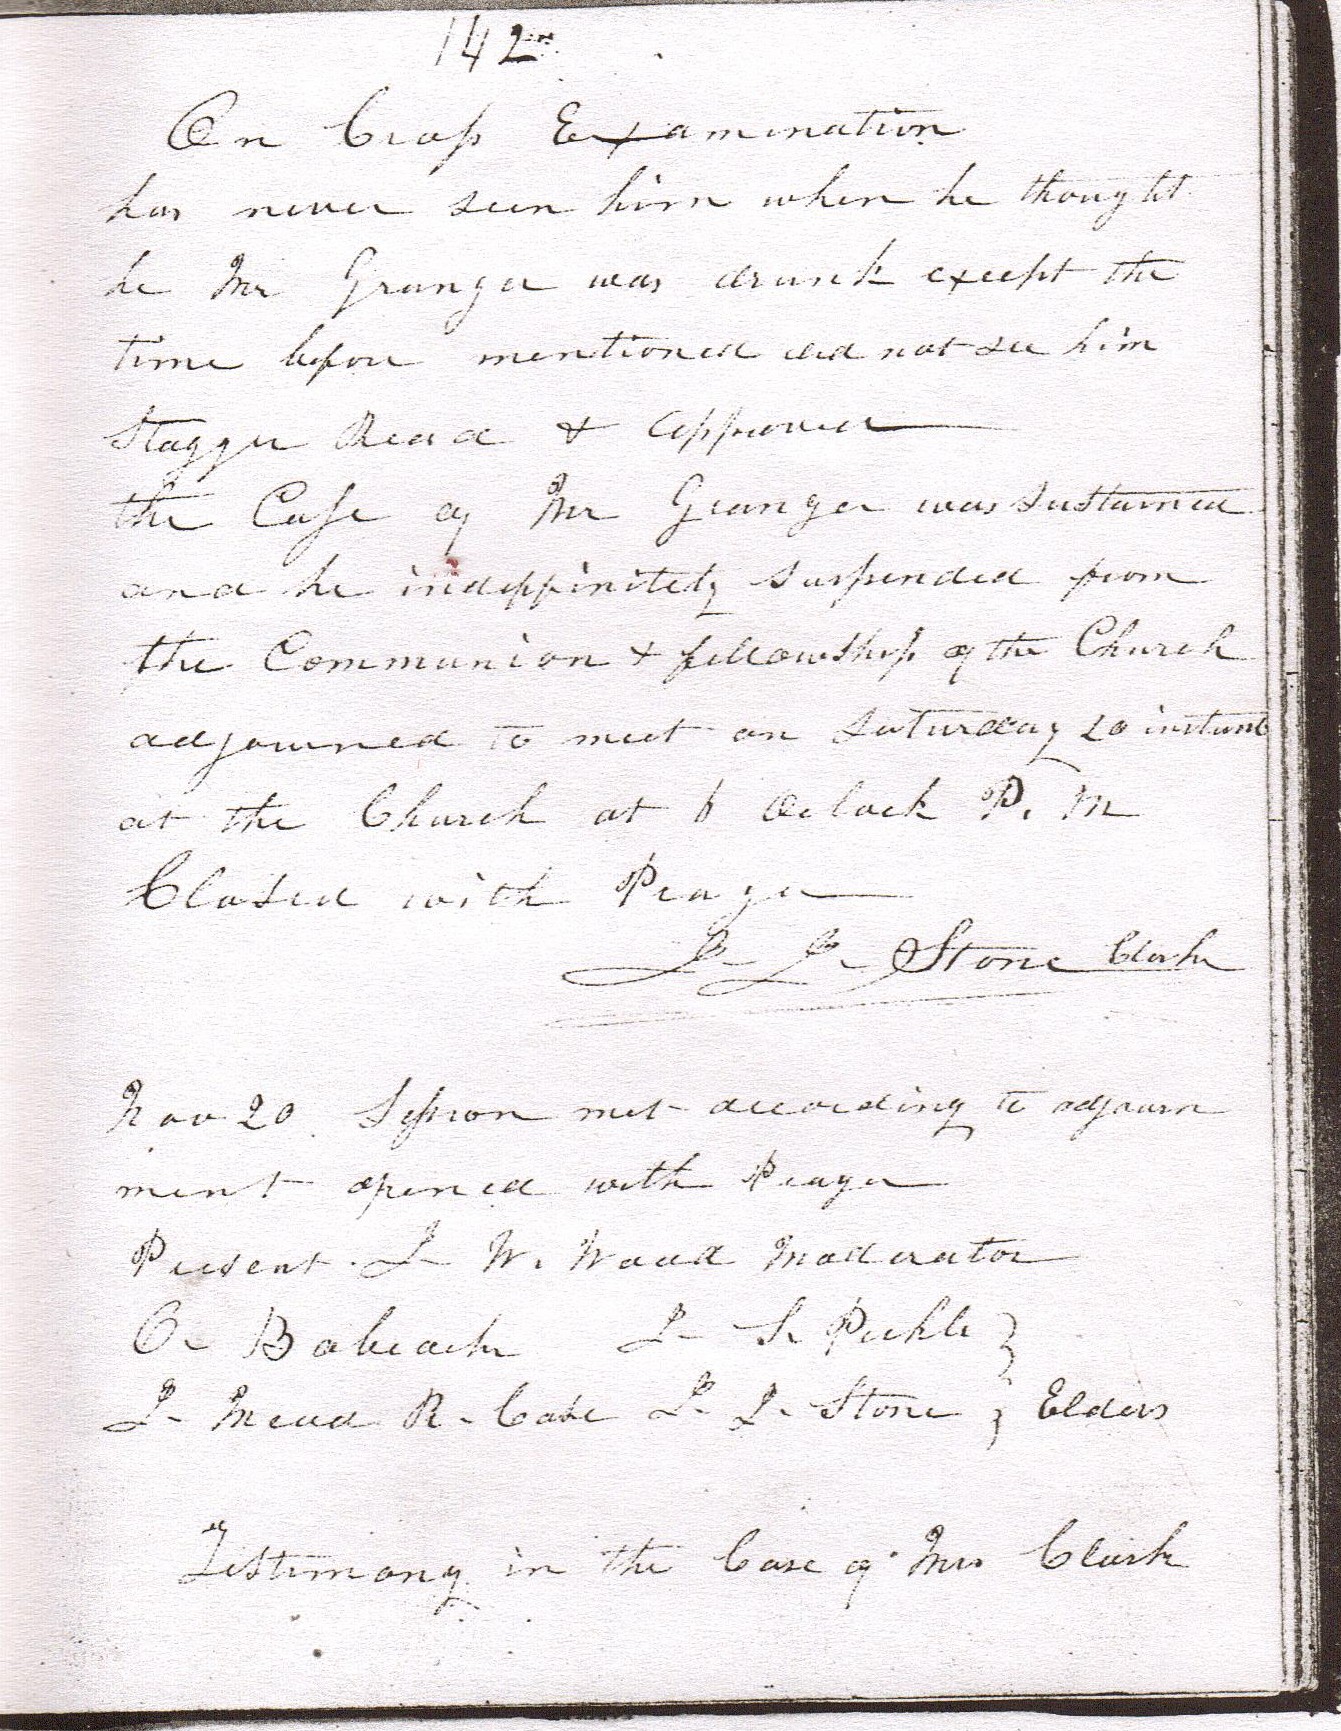 142
On Cross Examination
has never seen him when he thought
he Mr Granger was drunk except the
time before mentioned did not see him
Stagger Read & approved
the Case of Mr Granger was sustained
and he indeffinitely suspended from
the Communion & fellowship of the Church
adjourned to meet on Saturday 20 instant
at the Church at 6 Oclock P. M
Closed with Prayer
L. L. Stone Clerk
Nov 20 Session met according to adjourn
ment opened with Prayer
Present. J. W. Wood Moderator
C. Babcock L. S. Pickle
L. Mead R. Case L. L. Stone } Elders
Testimony in the Case of Mrs Clark